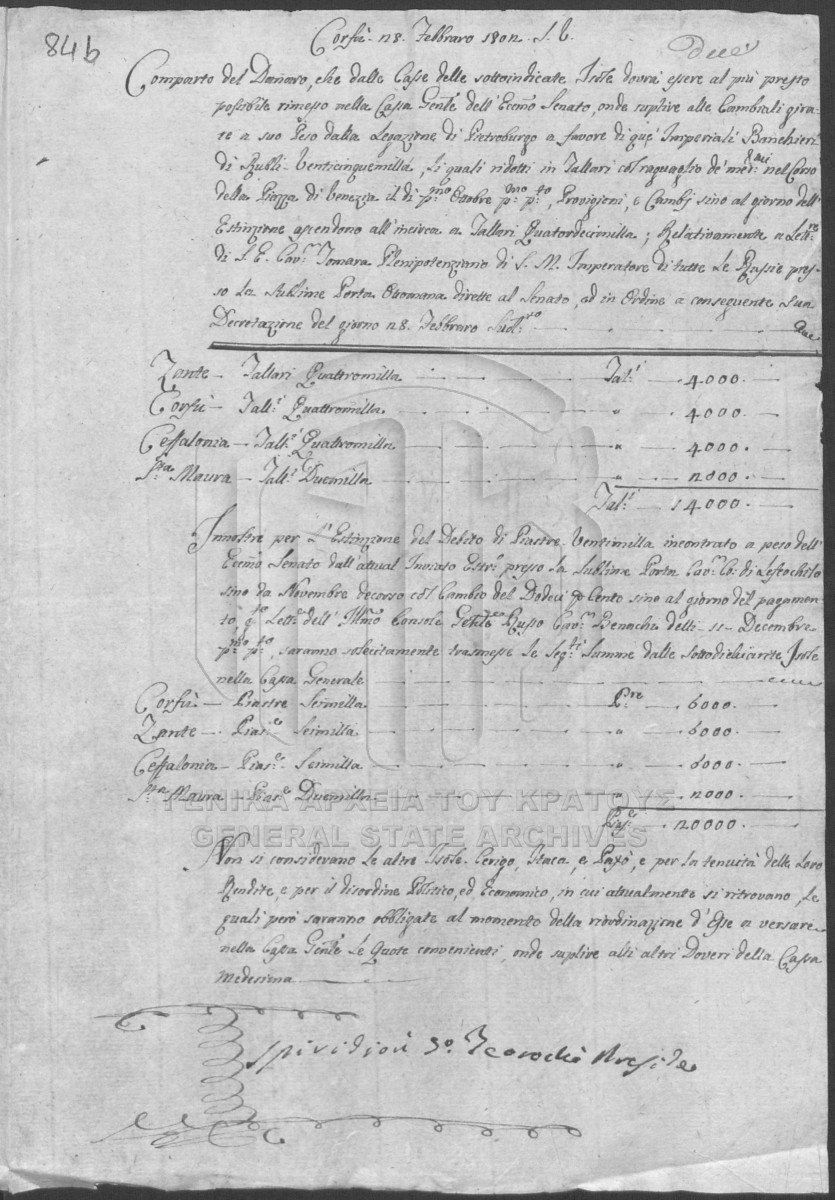 84b
Corfù 28. Febbraro 1802. S. V.
Comparto del Danaro, che dalle Casse delle sottoindicate Isole dovrà essere al più presto
possibile rimesso nella Cassa Genle dell' Eccmo Senato, onde suplire alle Cambiali gira-
te a suo Peso dalla Legazione di Pietroburgo a favore di que' Imperiali Banchieri
di Rubli Venticinquemilla, li quali ridotti in Tallari col raguaglio de' mednmi nel Corso
della Piazza di Venezia il di pmo Ottobre pmo pto, Provigioni, e Cambj sino al giorno dell'
Estinzione ascendono all' incirca a Tallari Quatordecimilla; Relativamente a Lettre
di S. E. Cavr Tomara Plenipotenziario di S. M. Imperatore di tutte le Russie pres-
so La Sublime Porta Ottomana dirette al Senato, ed in Ordine a conseguente Sua
Decretazione del giorno 28. Febbraro Sudo
Zante — Tallari Quattromilla — Tal:i — 4000.
Corfù — Tall:i Quattromilla — " — 4000.
Ceffalonia — Tall:i Quattromilla — " — 4000.
Sta Maura — Tall:i Duemilla — " — 2000.
Tal:i — 14000.
Innoltre per L'Estinzione del Debito di Piastre Ventimilla incontrato a peso dell'
Eccmo Senato dall' attual Inviato Estro presso La Sublime Porta Cavr Co: di Lefcochilo
sino da Novembre decorso col Cambio del Dodeci p Cento sino al giorno del pagamen-
to, q:to Lettre dell' Illmo Console Genle Russo Cavr Benachi delli 11 Decembre
pmo pto, saranno solecitamente trasmesse le segti Summe dalle sottodilucidate Isole
nella Cassa Generale
Corfù — Piastre Seimilla — Pre — 6000.
Zante — Pias:e Seimilla — " — 6000.
Ceffalonia — Pias:e Seimilla — " — 6000.
Sta Maura — Pias:e Duemilla — " — 2000.
Pias:e — 20000.
ΓΕΝΙΚΑ ΑΡΧΕΙΑ ΤΟΥ ΚΡΑΤΟΥΣ
GENERAL STATE ARCHIVES
Non si considerano le altre Isole Cerigo, Itaca, e Paxò, e per la tenuità delle Loro
Rendite, e per il disordine Politico, ed Economico, in cui attualmente si ritrovano, Le
quali però saranno obbligate al momento della riordinazione d'esse a versare
nella Cassa Genle Le Quote convenienti, onde suplire alli altri Doveri della Cassa
medesima
Spiridion Teotochi